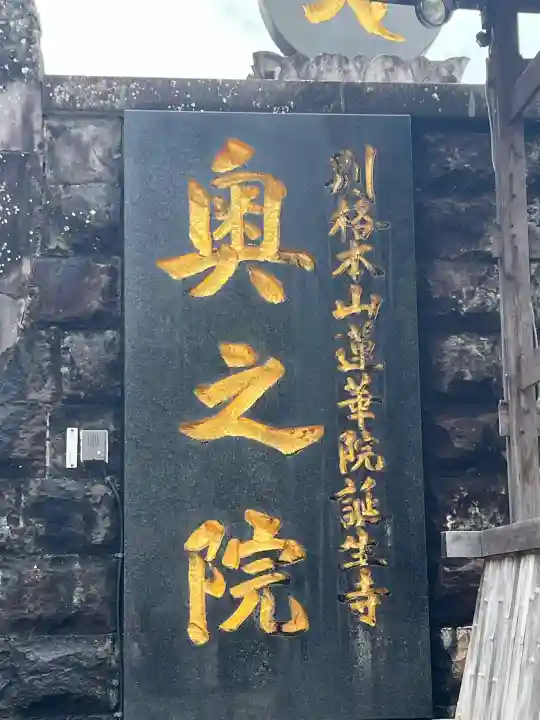 別格本山蓮華院誕生寺
奥之院